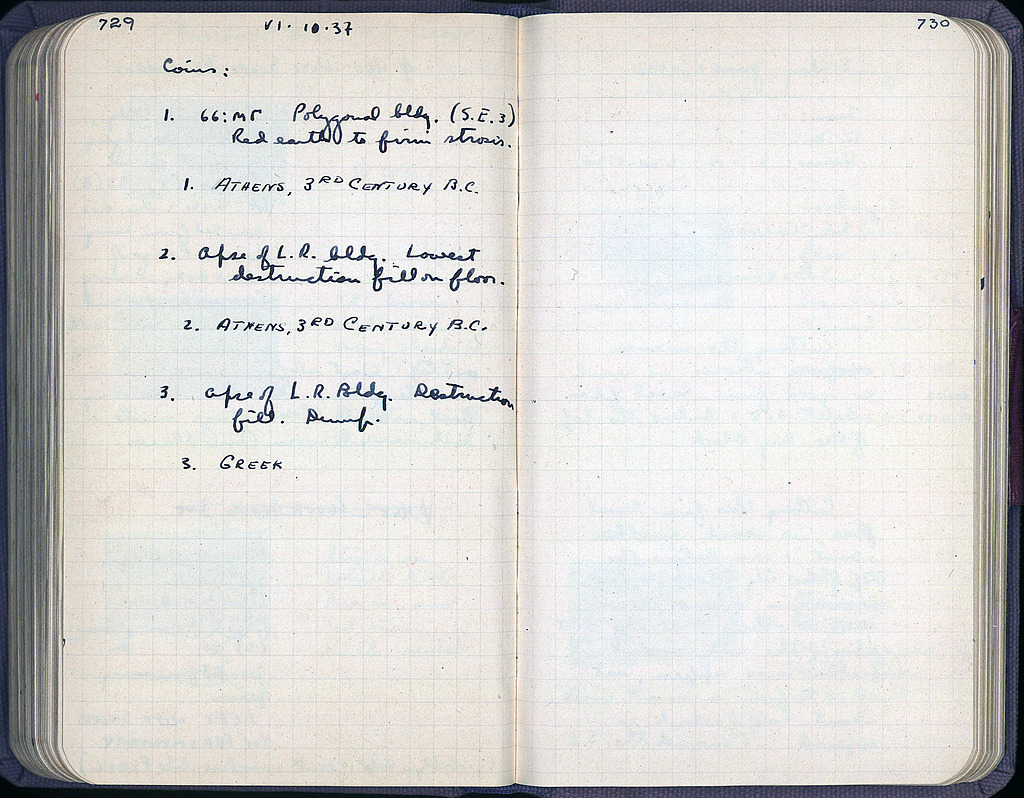 729
VI · 10 · 37
Coins:
1. 66:ΜΓ Polygonal bldg. (S.E. 3)
Red earth to firm strosis.
1. ATHENS, 3RD CENTURY B.C.
2. Apse of L.R. bldg. Lowest
destruction fill on floor.
2. ATHENS, 3RD CENTURY B.C.
3. Apse of L.R. Bldg. Destruction
fill. Dump.
3. GREEK
730